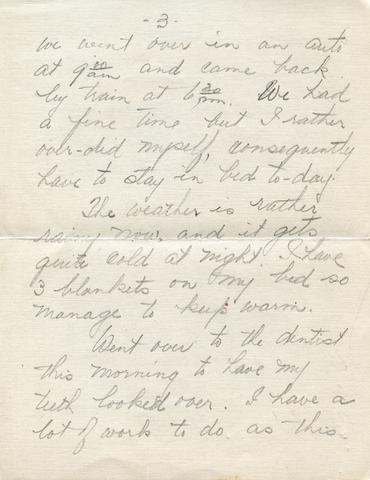 -3-
we went over in an auto
at 9 30 am and came back
by train at 6 30 pm. We had
a fine time but I rather
over-did myself, consequently
have to stay in bed to-day.
The weather is rather
rainy now, and it gets
quite cold at night. I have
3 blankets on my bed so
manage to keep warm.
Went over to the dentist
this morning to have my
teeth looked over. I have a
lot of work to do as this